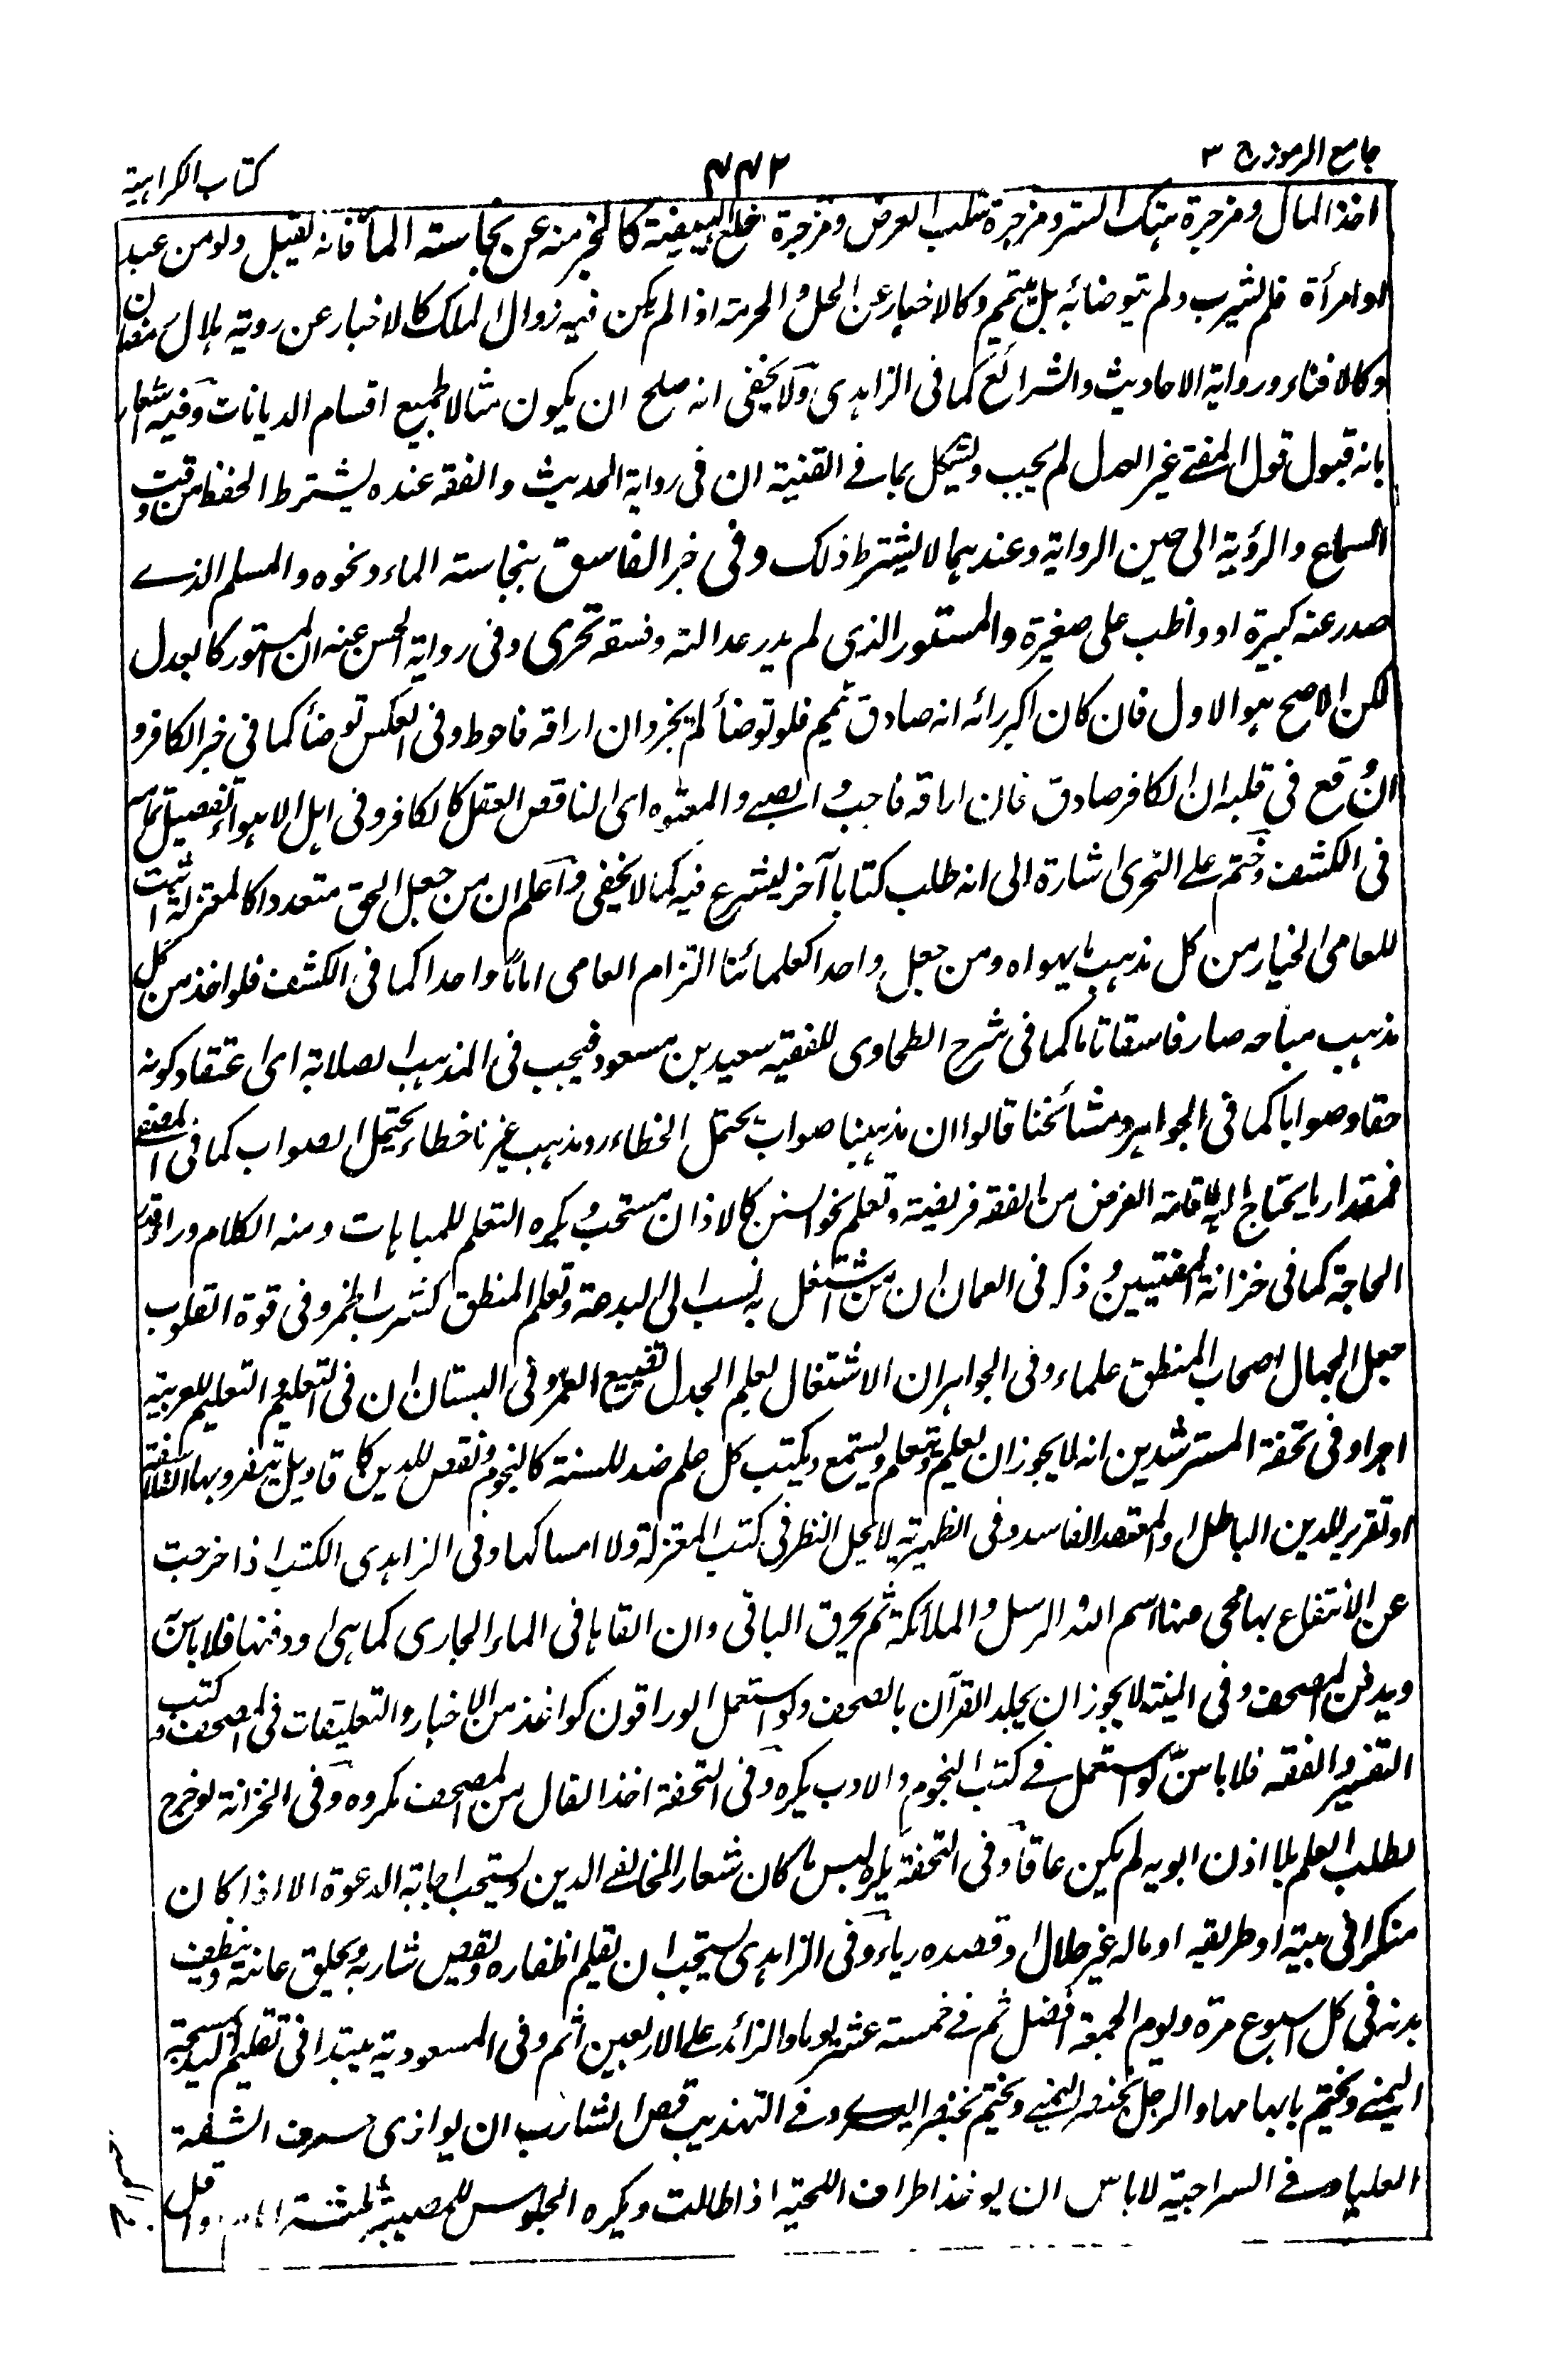 جامع الرموز ج ٣
٤٤٢
كتاب الكراهية
اخذ المال ومزجرة بهتك الستر ومزجرة بثلب العرض ومزجرة بخلع البيضة كالخبر منه عن نجاسة الماء فانه يقبل ولو من عبد
او امرأة فلم يشرب ولم يتوضا به بل يتيمم وكالاخبار عن الحل والحرمة اذا لم يكن فيه زوال الملك كالاخبار عن رويته هلال رمضان
وكالافتاء ورواية الاحاديث والشرائع كما فى الزاهدى ولا يخفى انه صلح ان يكون مثالا لجميع اقسام الديانات وفيه اشعار
بانه قبول قول المفتے غير العدل لم يجب ويشكل بما فے القنية ان فى رواية الحديث والفقه عنده يشترط الحفظ من وقت
السماع والرؤية الى حين الرواية وعندهما لا يشترط ذلك وفى خبر الفاسق بنجاسة الماء ونحوه والمسلم الذے
صدر عنه كبيرة او واظب على صغيرة والمستور الذى لم يدر عدالته وفسقه تحرى وفى رواية الحسن عنه ان المستور كالعدل
لكن الاصح هو الاول فان كان اكبر رائه انه صادق تيمم فلو توضأ لم يجز وان اراقه فاحوط وفى العكس توضأ كما فى خبر الكافر و
ان وقع فى قلبه ان الكافر صادق فان اراقه فاحب والصبے والمعتوه اى الناقص العقل كالكافر وفى اهل الاهواء تفصيل
فى الكشف وختم علے التحرى اشارة الى انه طلب كتابا آخر ليشرع فيه كما لا يخفى واعلم ان من جعل الحق متعددا كالمعتزلة اثبت
للعامى الخيار من كل مذهب ما يهواه ومن جعل واحدا كعلمائنا التزام العامى اماما واحدا كما فى الكشف فلو اخذ من كل
مذهب مباحه صار فاسقا تاما كما فى شرح الطحاوى للفقيه سعيد بن مسعود فيجب فى المذهب الصلابة اى اعتقاد كونه
حقا وصوابا كما فى الجواهر ومشائخنا قالوا ان مذهبنا صواب يحتمل الخطاء ومذهب غيرنا خطاء يحتمل الصواب كما فى المصفى
فمقدار ما يحتاج اليه لاقامة الفرض من الفقه فريضة وتعلم نحو السنن كالاذان مستحب ويكره التعلم للمباهات ومنه الكلام وراء قدر
الحاجة كما فى خزانة المفتيين وذكر فى العمان ان من اشتغل به نسب الى البدعة وتعلم المنطق كشرب الخمر وفى قوة القلوب
جعل الجهال اصحاب المنطق علماء وفى الجواهر ان الاشتغال بعلم الجدل تضييع العمر وفى البستان ان فى التعليم والتعلم للعربية
اجرا وفى تحفة المسترشدين انه لا يجوز ان يعلم ويتعلم ويستمع ويكتب كل علم ضد للسنة كالنجوم ونقص للدين كاقاويل يتفرد بها الفلاسفة
او تقرير للدين الباطل او المقصد الفاسد وفى الظهيرية لا يحل النظر فى كتب المعتزلة ولا امساكها وفى الزاهدى الكتب اذا خرجت
عن الانتفاع بها محى عنها اسم الله والرسل والملائكة ثم يحرق الباقى وان القاها فى الماء الجارى كما هى او دفنها فلا باس
ويدفن المصحف وفى المنية لا يجوز ان يجلد القرآن بالصحف ولو استعمل الوراقون كواغذ من الاخبار والتعليقات فى المصحف وكتب
التفسير والفقه فلا باس ولو استعمل فے كتب النجوم والادب يكره وفى التحفة اخذ الفال من المصحف مكروه وفى الخزانة لو خرج
لطلب العلم بلا اذن ابويه لم يكن عاقا وفى التحفة يكره لبس ما كان شعار المخالفے الدين ويستحب اجابة الدعوة الا اذا كان
منكرا فى بيته او طريقه او ماله غير حلال او قصده رياء وفى الزاهدى يستحب ان يقلم اظفاره ويقص شاربه ويحلق عانته وينظف
بدنه فى كل اسبوع مرة ويوم الجمعة افضل ثم فے خمسة عشر يوما والزائد علے الاربعين اثم وفى المسعودية يبتدا فى تقليم اليد بمسبحة
اليمنے ويختم بابهامها والرجل بخنصر اليمنے ويختم بخنصر اليسرے وفے التهذيب قص الشارب ان يوازى حرف الشفة
العليا وفے السراجية لا باس ان يوخذ اطراف اللحية اذا طالت ويكره الجلوس للمصيبة ثلثة